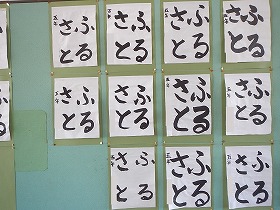 ふる
さと
ふる
さと
ふる
さと
ふる
さと
ふる
さと
ふる
さと
ふる
さと
ふる
さと
ふる
さと
ふる
さと
ふる
さと